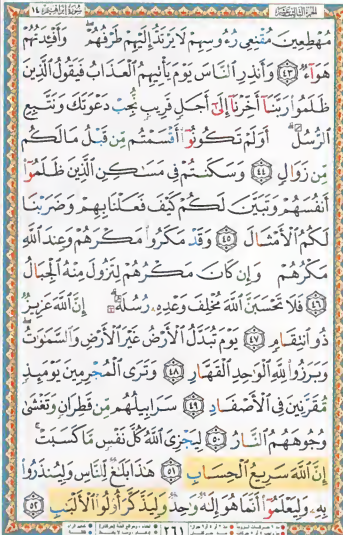 سورة إبراهيم ١٤
مُهْطِعِينَ مُقْنِعِي رُءُوسِهِمْ لَا يَرْتَدُّ إِلَيْهِمْ طَرْفُهُمْ وَأَفْـِٔدَتُهُمْ
هَوَآءٌ ٤٣ وَأَنذِرِ ٱلنَّاسَ يَوْمَ يَأْتِيهِمُ ٱلْعَذَابُ فَيَقُولُ ٱلَّذِينَ
ظَلَمُوا۟ رَبَّنَآ أَخِّرْنَآ إِلَىٰٓ أَجَلٍ قَرِيبٍ نُّجِبْ دَعْوَتَكَ وَنَتَّبِعِ
ٱلرُّسُلَ أَوَلَمْ تَكُونُوٓا۟ أَقْسَمْتُم مِّن قَبْلُ مَا لَكُم
مِّن زَوَالٍ ٤٤ وَسَكَنتُمْ فِي مَسَـٰكِنِ ٱلَّذِينَ ظَلَمُوٓا۟
أَنفُسَهُمْ وَتَبَيَّنَ لَكُمْ كَيْفَ فَعَلْنَا بِهِمْ وَضَرَبْنَا
لَكُمُ ٱلْأَمْثَالَ ٤٥ وَقَدْ مَكَرُوا۟ مَكْرَهُمْ وَعِندَ ٱللَّهِ
مَكْرُهُمْ وَإِن كَانَ مَكْرُهُمْ لِتَزُولَ مِنْهُ ٱلْجِبَالُ
٤٦ فَلَا تَحْسَبَنَّ ٱللَّهَ مُخْلِفَ وَعْدِهِۦ رُسُلَهُۥٓ إِنَّ ٱللَّهَ عَزِيزٌ
ذُو ٱنتِقَامٍ ٤٧ يَوْمَ تُبَدَّلُ ٱلْأَرْضُ غَيْرَ ٱلْأَرْضِ وَٱلسَّمَـٰوَٰتُ
وَبَرَزُوا۟ لِلَّهِ ٱلْوَٰحِدِ ٱلْقَهَّارِ ٤٨ وَتَرَى ٱلْمُجْرِمِينَ يَوْمَئِذٍ
مُّقَرَّنِينَ فِي ٱلْأَصْفَادِ ٤٩ سَرَابِيلُهُم مِّن قَطِرَانٍ وَتَغْشَىٰ
وُجُوهَهُمُ ٱلنَّارُ ٥٠ لِيَجْزِيَ ٱللَّهُ كُلَّ نَفْسٍ مَّا كَسَبَتْ
إِنَّ ٱللَّهَ سَرِيعُ ٱلْحِسَابِ ٥١ هَـٰذَا بَلَـٰغٌ لِّلنَّاسِ وَلِيُنذَرُوا۟
بِهِۦ وَلِيَعْلَمُوٓا۟ أَنَّمَا هُوَ إِلَـٰهٌ وَٰحِدٌ وَلِيَذَّكَّرَ أُو۟لُوا۟ ٱلْأَلْبَـٰبِ ٥٢
٢٦١